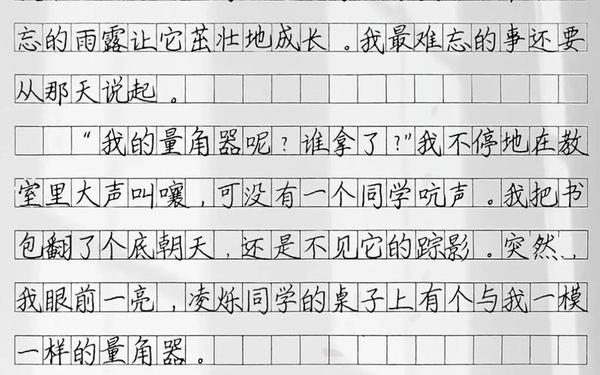 忘的雨露让它茁壮地成长。我最难忘的事还要
从那天说起。
“我的量角器呢？谁拿了？”我不停地在教
室里大声叫嚷，可没有一个同学吭声。我把书
包翻了个底朝天，还是不见它的踪影。突然，
我眼前一亮，凌烁同学的桌子上有个与我一模
一样的量角器。